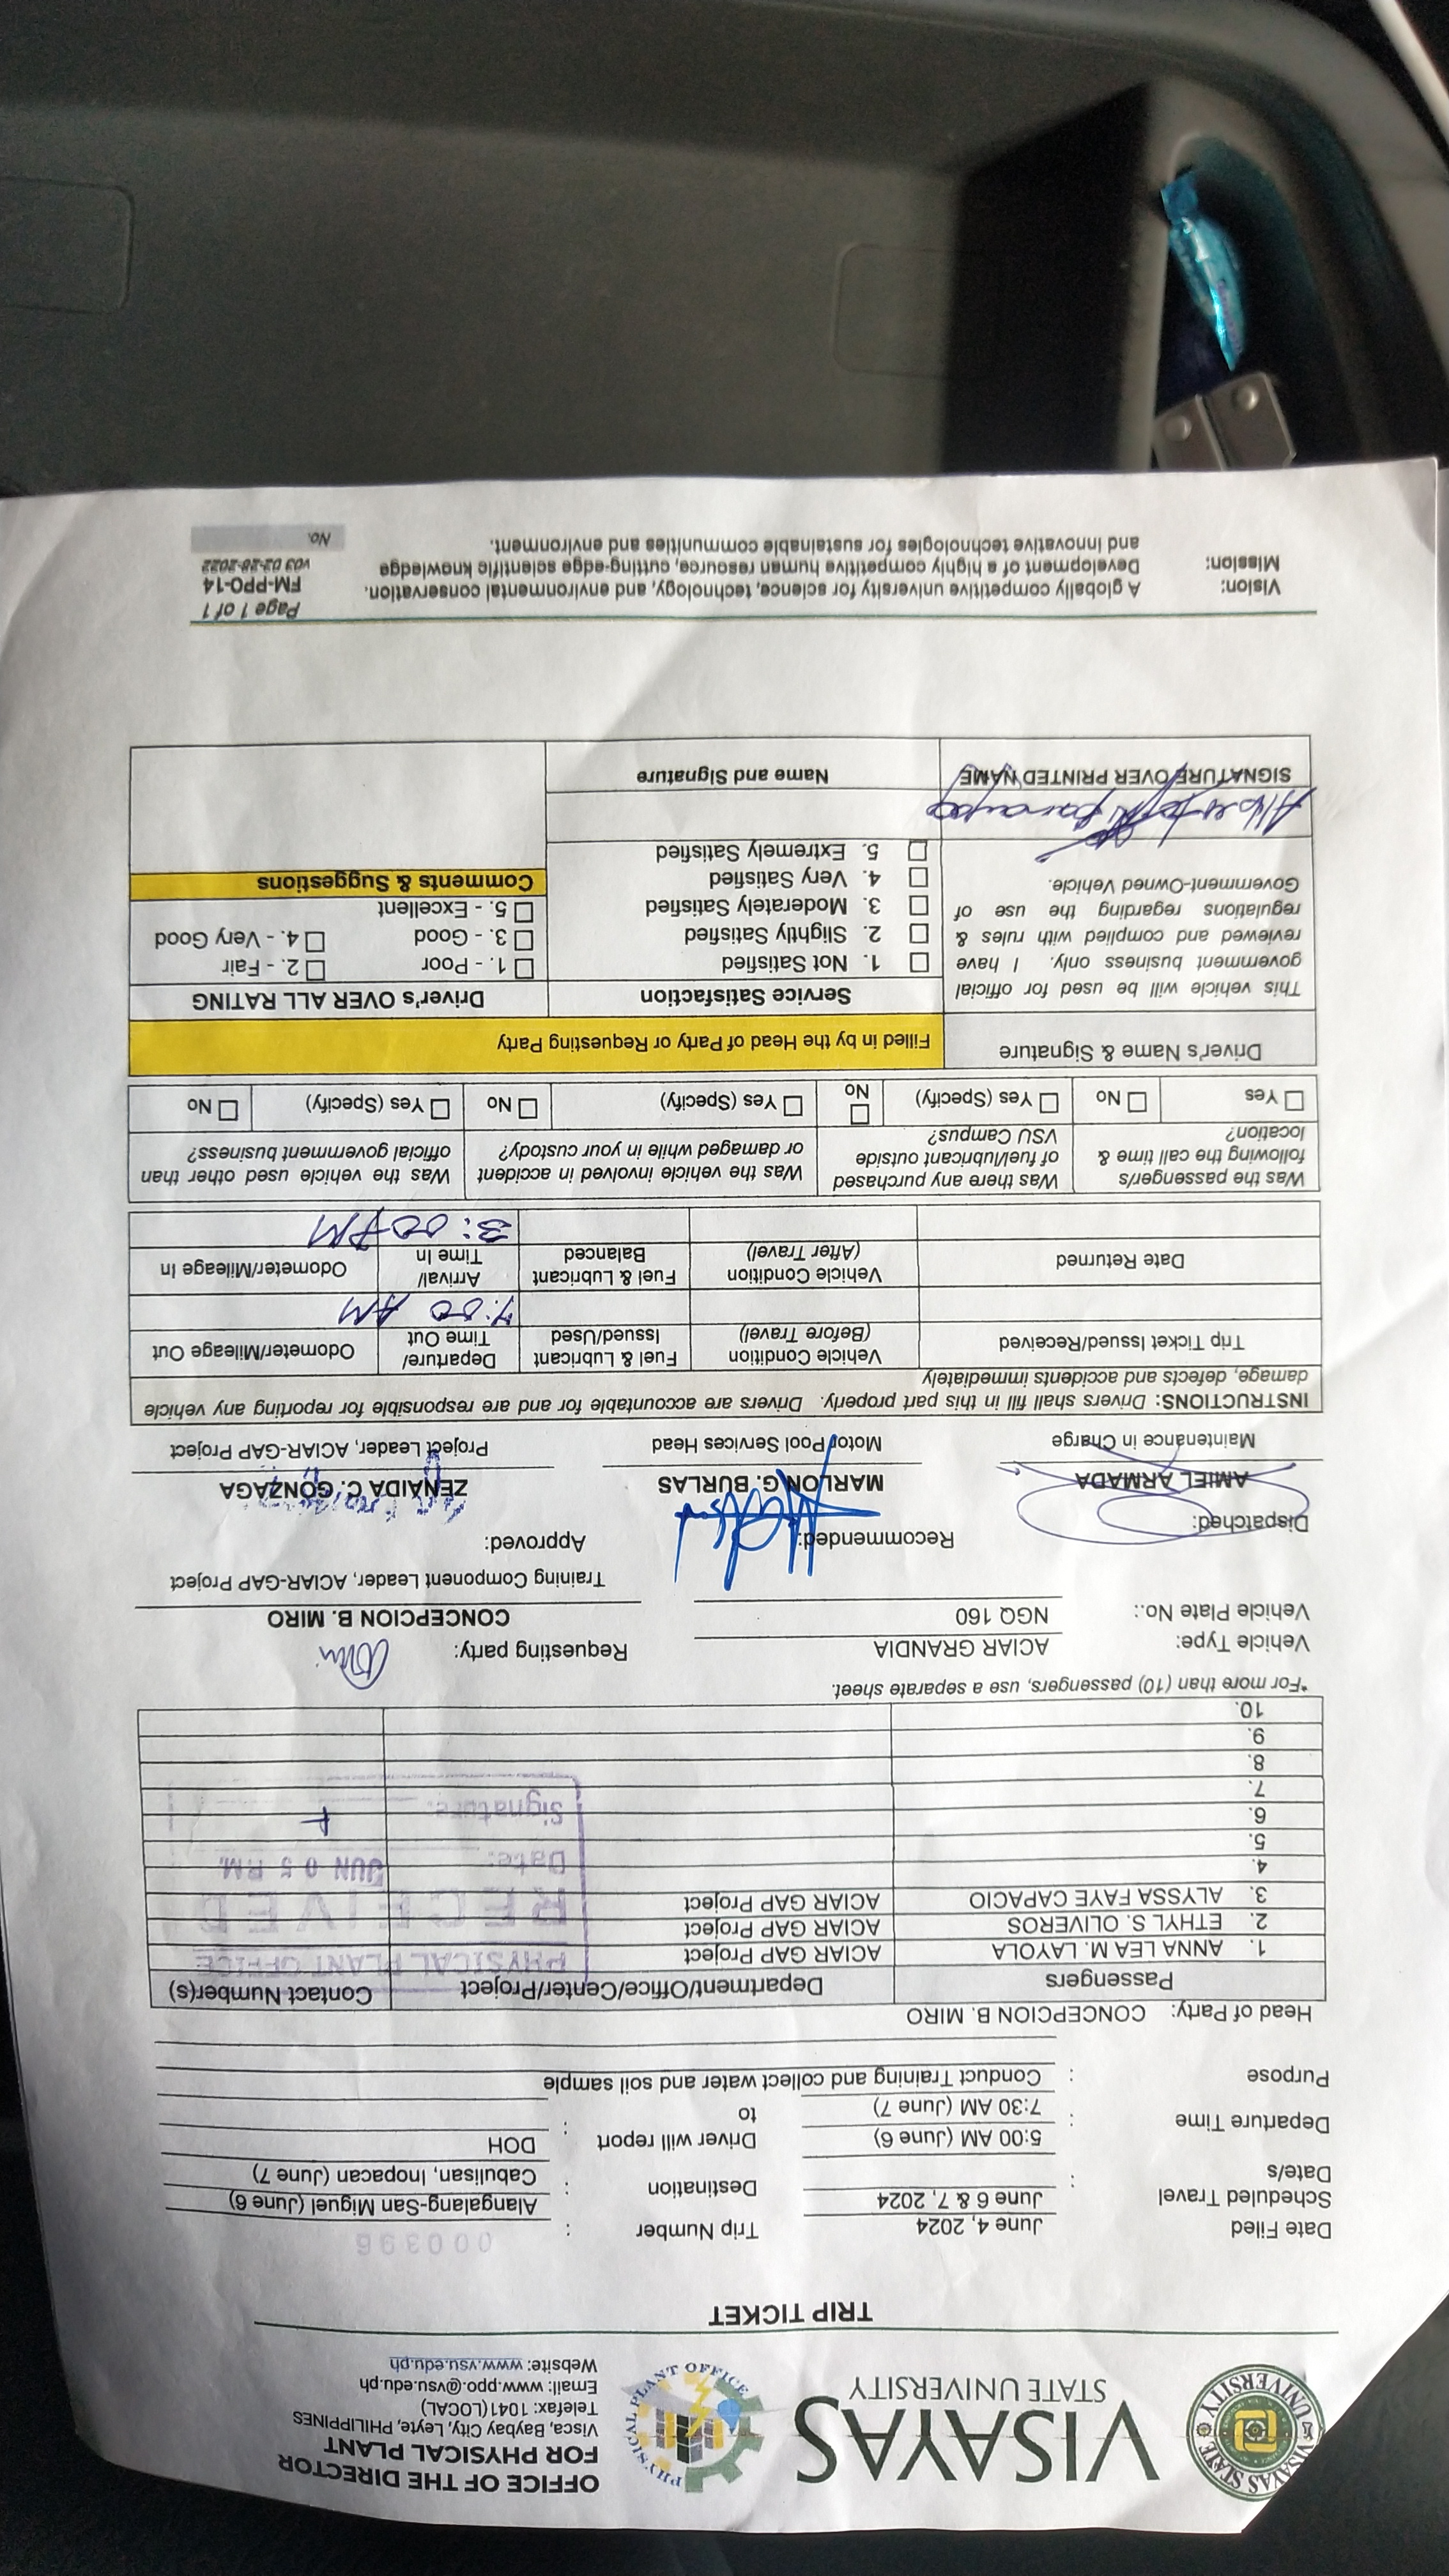 VISAYAS STATE UNIVERSITY
VISAYAS
STATE UNIVERSITY
PHYSICAL PLANT OFFICE
OFFICE OF THE DIRECTOR
FOR PHYSICAL PLANT
Visca, Baybay City, Leyte, PHILIPPINES
Telefax: 1041(LOCAL)
Email: www.ppo.@vsu.edu.ph
Website: www.vsu.edu.ph
TRIP TICKET
Date Filed June 4, 2024 Trip Number : 000396
Scheduled Travel Date/s : June 6 & 7, 2024 Destination : Alangalang-San Miguel (June 6)
Cabulisan, Inopacan (June 7)
Departure Time : 5:00 AM (June 6) Driver will report to : DOH
7:30 AM (June 7)
Purpose : Conduct Training and collect water and soil sample
Head of Party: CONCEPCION B. MIRO
Passengers Department/Office/Center/Project Contact Number(s)
1. ANNA LEA M. LAYOLA ACIAR GAP Project
2. ETHYL S. OLIVEROS ACIAR GAP Project
3. ALYSSA FAYE CAPACIO ACIAR GAP Project
4.
5.
6.
7.
8.
9.
10.
PHYSICAL PLANT OFFICE
RECEIVED
Date: JUN 05 P.M.
Signature:
*For more than (10) passengers, use a separate sheet.
Vehicle Type: ACIAR GRANDIA Requesting party:
Vehicle Plate No.: NGQ 160 CONCEPCION B. MIRO
Training Component Leader, ACIAR-GAP Project
Dispatched: Recommended: Approved:
AMIEL ARMADA MARLON G. BURLAS ZENAIDA C. GONZAGA
Maintenance in Charge Motor Pool Services Head Project Leader, ACIAR-GAP Project
INSTRUCTIONS: Drivers shall fill in this part properly. Drivers are accountable for and are responsible for reporting any vehicle
damage, defects and accidents immediately
Trip Ticket Issued/Received Vehicle Condition (Before Travel) Fuel & Lubricant Issued/Used Departure/ Time Out Odometer/Mileage Out
7:00 AM
Date Returned Vehicle Condition (After Travel) Fuel & Lubricant Balanced Arrival/ Time In Odometer/Mileage In
3:00 PM
Was the passenger/s following the call time & location? Was there any purchased of fuel/lubricant outside VSU Campus? Was the vehicle involved in accident or damaged while in your custody? Was the vehicle used other than official government business?
Yes No Yes (Specify) No Yes (Specify) No Yes (Specify) No
Driver's Name & Signature Filled in by the Head of Party or Requesting Party
This vehicle will be used for official
government business only. I have
reviewed and complied with rules &
regulations regarding the use of
Government-Owned Vehicle.
SIGNATURE OVER PRINTED NAME
Service Satisfaction
1. Not Satisfied
2. Slightly Satisfied
3. Moderately Satisfied
4. Very Satisfied
5. Extremely Satisfied
Name and Signature
Driver's OVER ALL RATING
1. - Poor 2. - Fair
3. - Good 4. - Very Good
5. - Excellent
Comments & Suggestions
Vision: A globally competitive university for science, technology, and environmental conservation.
Mission: Development of a highly competitive human resource, cutting-edge scientific knowledge
and innovative technologies for sustainable communities and environment.
Page 1 of 1
FM-PPO-14
v03 02-28-2022
No.